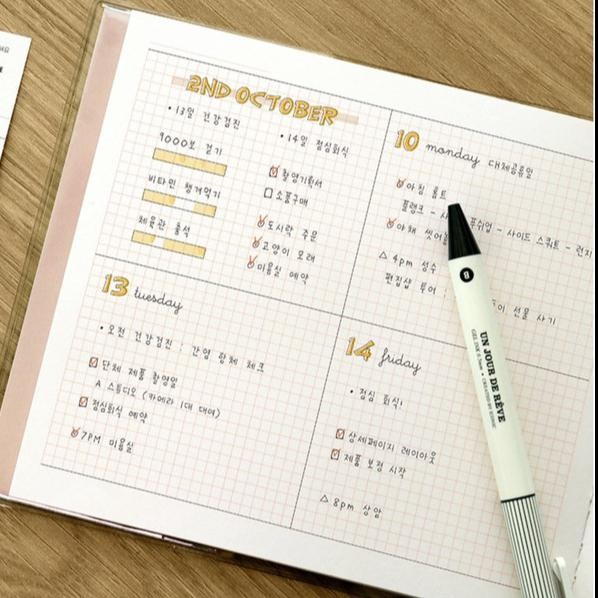 2ND OCTOBER
• 13일 건강검진
9000보 걷기
비타민 챙겨먹기
체육관 출석
• 14일 점심회식
촬영기획서
소품구매
도시락 주문
고양이 모래
미용실 예약
10 monday 대체공휴일
아침 홈트
플랭크 - 사 푸쉬업 - 사이드 스쿼트 - 런지
야채 씻어
△ 4pm 성수
편집샵 투어 : 선물 사기
13 tuesday
• 오전 건강검진 : 간염 항체 체크
단체 제품 촬영일
A 스튜디오 (카메라 1대 대여)
점심회식 예약
7PM 미용실
14 friday
• 점심 회식!
상세페이지 레이아웃
제품 보정 시작
△ 8pm 상암
UN JOUR DE RÊVE
GEL INK 0.5mm • CREATED BY ICONIC